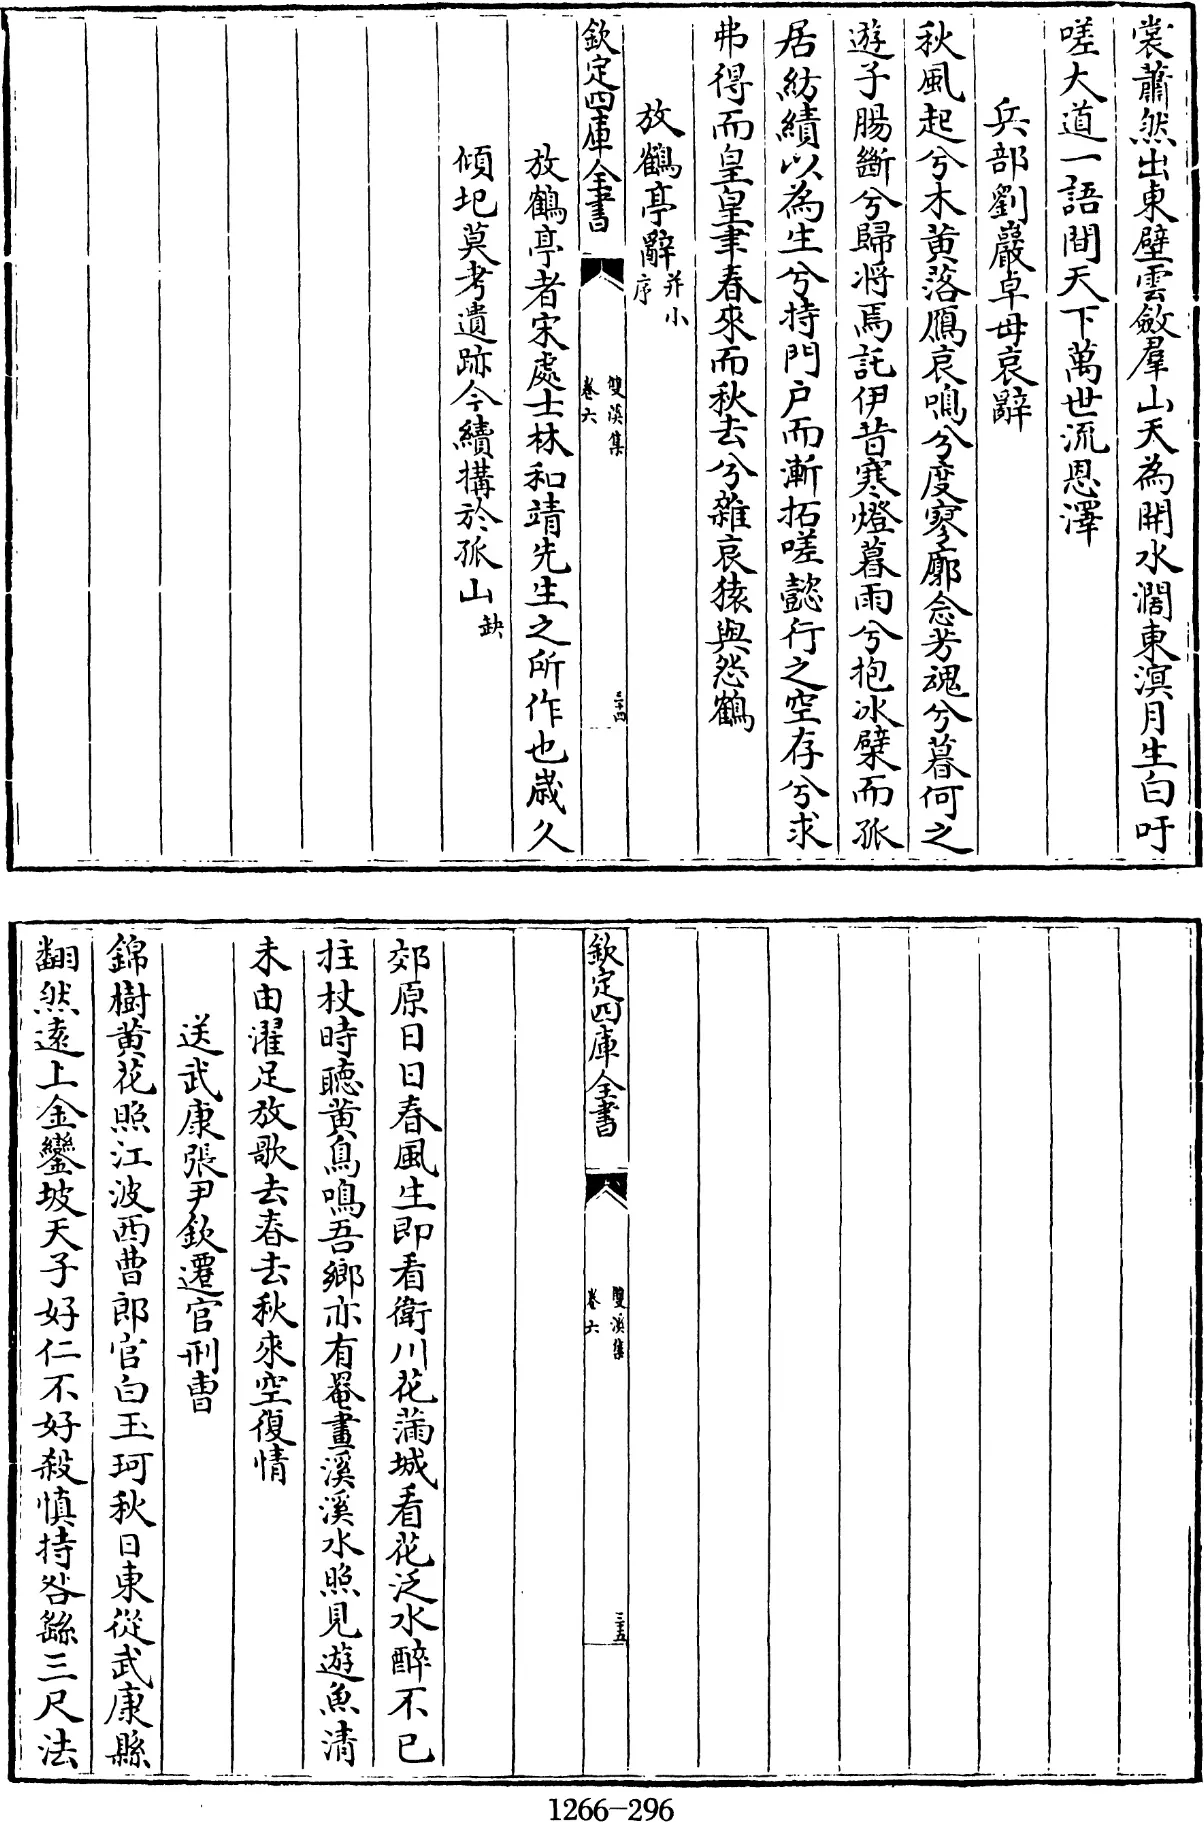 裳蕭然出東壁雲斂羣山天為開水濶東溟月生白吁
嗟大道一語間天下萬世流恩澤
兵部劉巖卓母哀辭
秋風起兮木黄落鴈哀鳴兮度寥廓念芳魂兮暮何之
遊子腸斷兮歸将焉託伊昔寒燈暮雨兮抱冰檗而孤
居紡績以為生兮持門户而漸拓嗟懿行之空存兮求
弗得而皇皇聿春來而秋去兮雜哀猿與怨鶴
放鶴亭辭并小序
欽定四庫全書
雙溪集
卷六
三十四
放鶴亭者宋處士林和靖先生之所作也歲久
傾圯莫考遺跡今續搆於孤山缺
欽定四庫全書
雙溪集
卷六
三十五
郊原日日春風生即看衛川花滿城看花泛水醉不已
拄杖時聽黄鳥鳴吾鄉亦有罨畫溪溪水照見遊魚清
未由濯足放歌去春去秋來空復情
送武康張尹欽遷官刑曹
錦樹黄花照江波西曹郎官白玉珂秋日東從武康縣
翻然遠上金鑾坡天子好仁不好殺慎持咎繇三尺法
1266-296